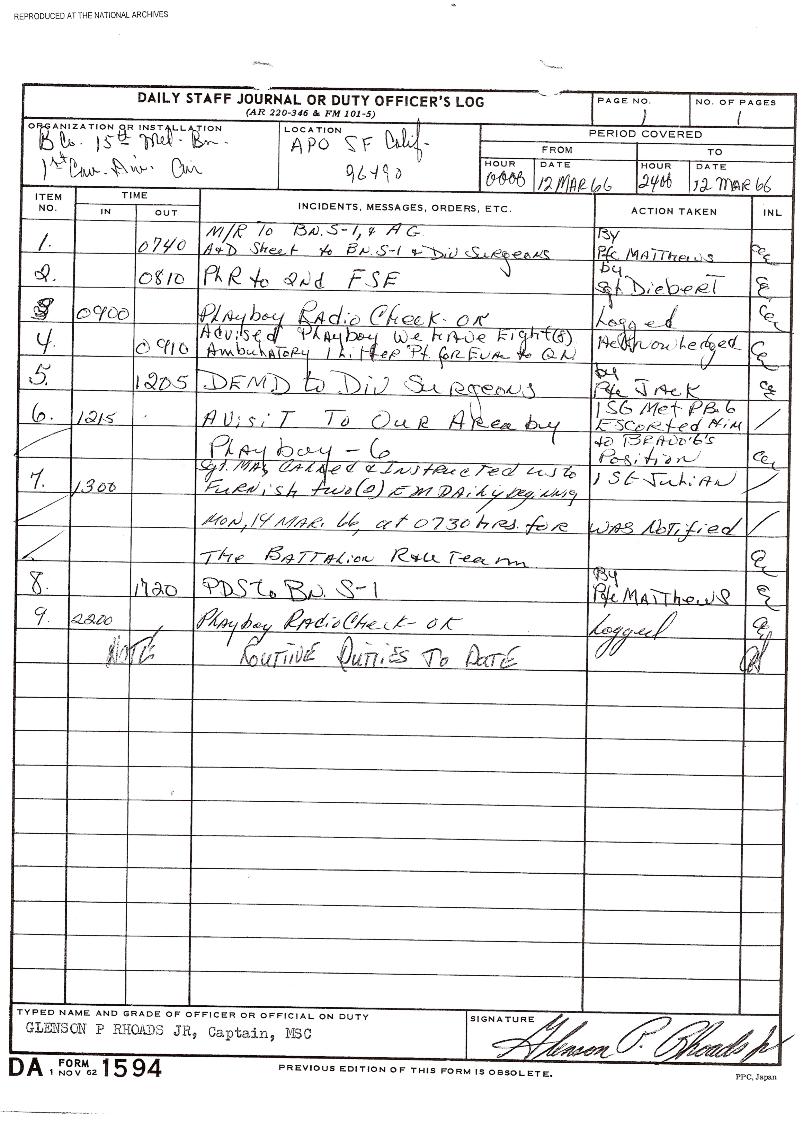 REPRODUCED AT THE NATIONAL ARCHIVES
DAILY STAFF JOURNAL OR DUTY OFFICER'S LOG
(AR 220-346 & FM 101-5)
PAGE NO.
1
NO. OF PAGES
1
ORGANIZATION OR INSTALLATION
B Co. 15th Med. Bn.
1st Cav. Div. Air
LOCATION
APO SF Calif.
96490
PERIOD COVERED
FROM
TO
HOUR
0000
DATE
12 MAR 66
HOUR
2400
DATE
12 MAR 66
ITEM NO.
TIME
IN
OUT
INCIDENTS, MESSAGES, ORDERS, ETC.
ACTION TAKEN
INL
1. 0740 M/R To BN. S-1, & AG By
A&D Sheet to BN. S-1 & Div Surgeons Pfc MATTHEWS
2. 0810 PhR to 2nd FSE by
Sgt Diebert
3 0900 Playboy Radio Check- OK Logged
4. 0910 Advised Playboy We HAVE Eight(8) Acknowledged
Ambulatory 1 Litter Pt. for EVAC to QN
5. 1205 DEMD to Div Surgeons by
Pfc JACK
6. 1215 A Visit To Our Area by 1SG Met PB-6
Playboy - 6 ESCORTED Him
to BRAVO 6's
Position
7. 1300 Sgt. MAJ CALLED & INSTRUCTED us to 1SG Julian
FURNISH two(2) EM DAily beginning
MON, 14 MAR. 66, at 0730 HRS. for WAS Notified
THE BATTALION R&U Team
8. 1720 PDS to BN. S-1 By
Pfc MATTHEWS
9. 2200 Playboy Radio Check- OK Logged
NOTE ROUTINE DUTIES TO DATE
TYPED NAME AND GRADE OF OFFICER OR OFFICIAL ON DUTY
GLENSON P RHOADS JR, Captain, MSC
SIGNATURE
Glenson P. Rhoads Jr
DA FORM 1594
1 NOV 62
PREVIOUS EDITION OF THIS FORM IS OBSOLETE.
PPC, Japan